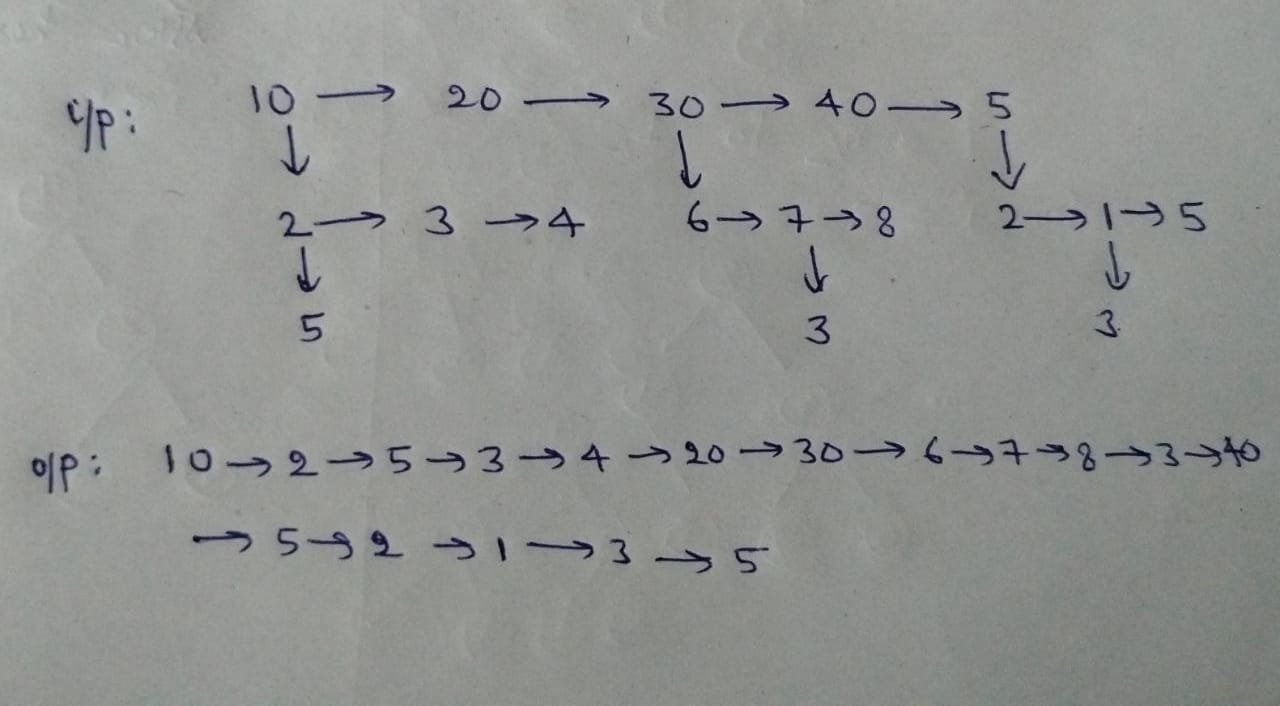 i/p: 10 → 20 → 30 → 40 → 5
↓ ↓ ↓
2 → 3 → 4 6 → 7 → 8 2 → 1 → 5
↓ ↓ ↓
5 3 3
o/p: 10 → 2 → 5 → 3 → 4 → 20 → 30 → 6 → 7 → 8 → 3 → 40
→ 5 → 2 → 1 → 3 → 5